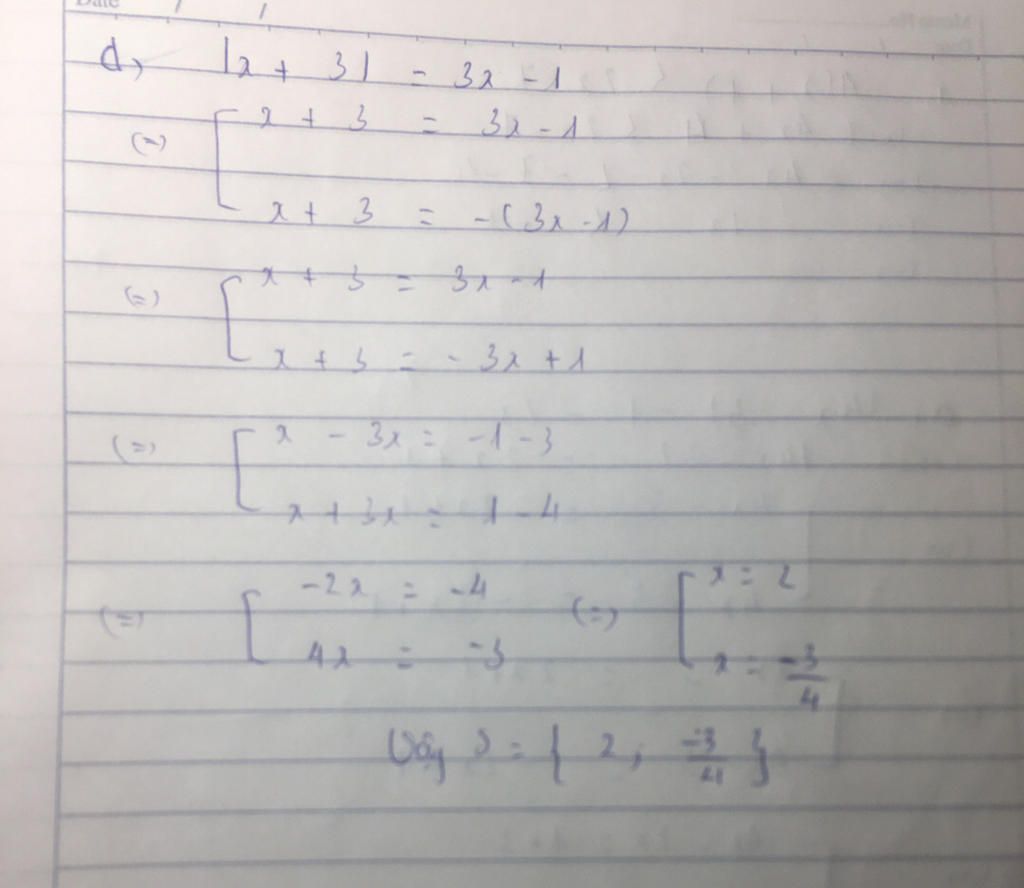 Date / /
d, |x + 3| = 3x - 1
(=) [ x + 3 = 3x - 1
x + 3 = -(3x - 1)
(=) [ x + 3 = 3x - 1
x + 3 = - 3x + 1
(=) [ x - 3x = -1 - 3
x + 3x = 1 - 4
(=) [ -2x = -4 (=) [ x = 2
4x = -3 x = -3/4
Vậy S = { 2, -3/4 }